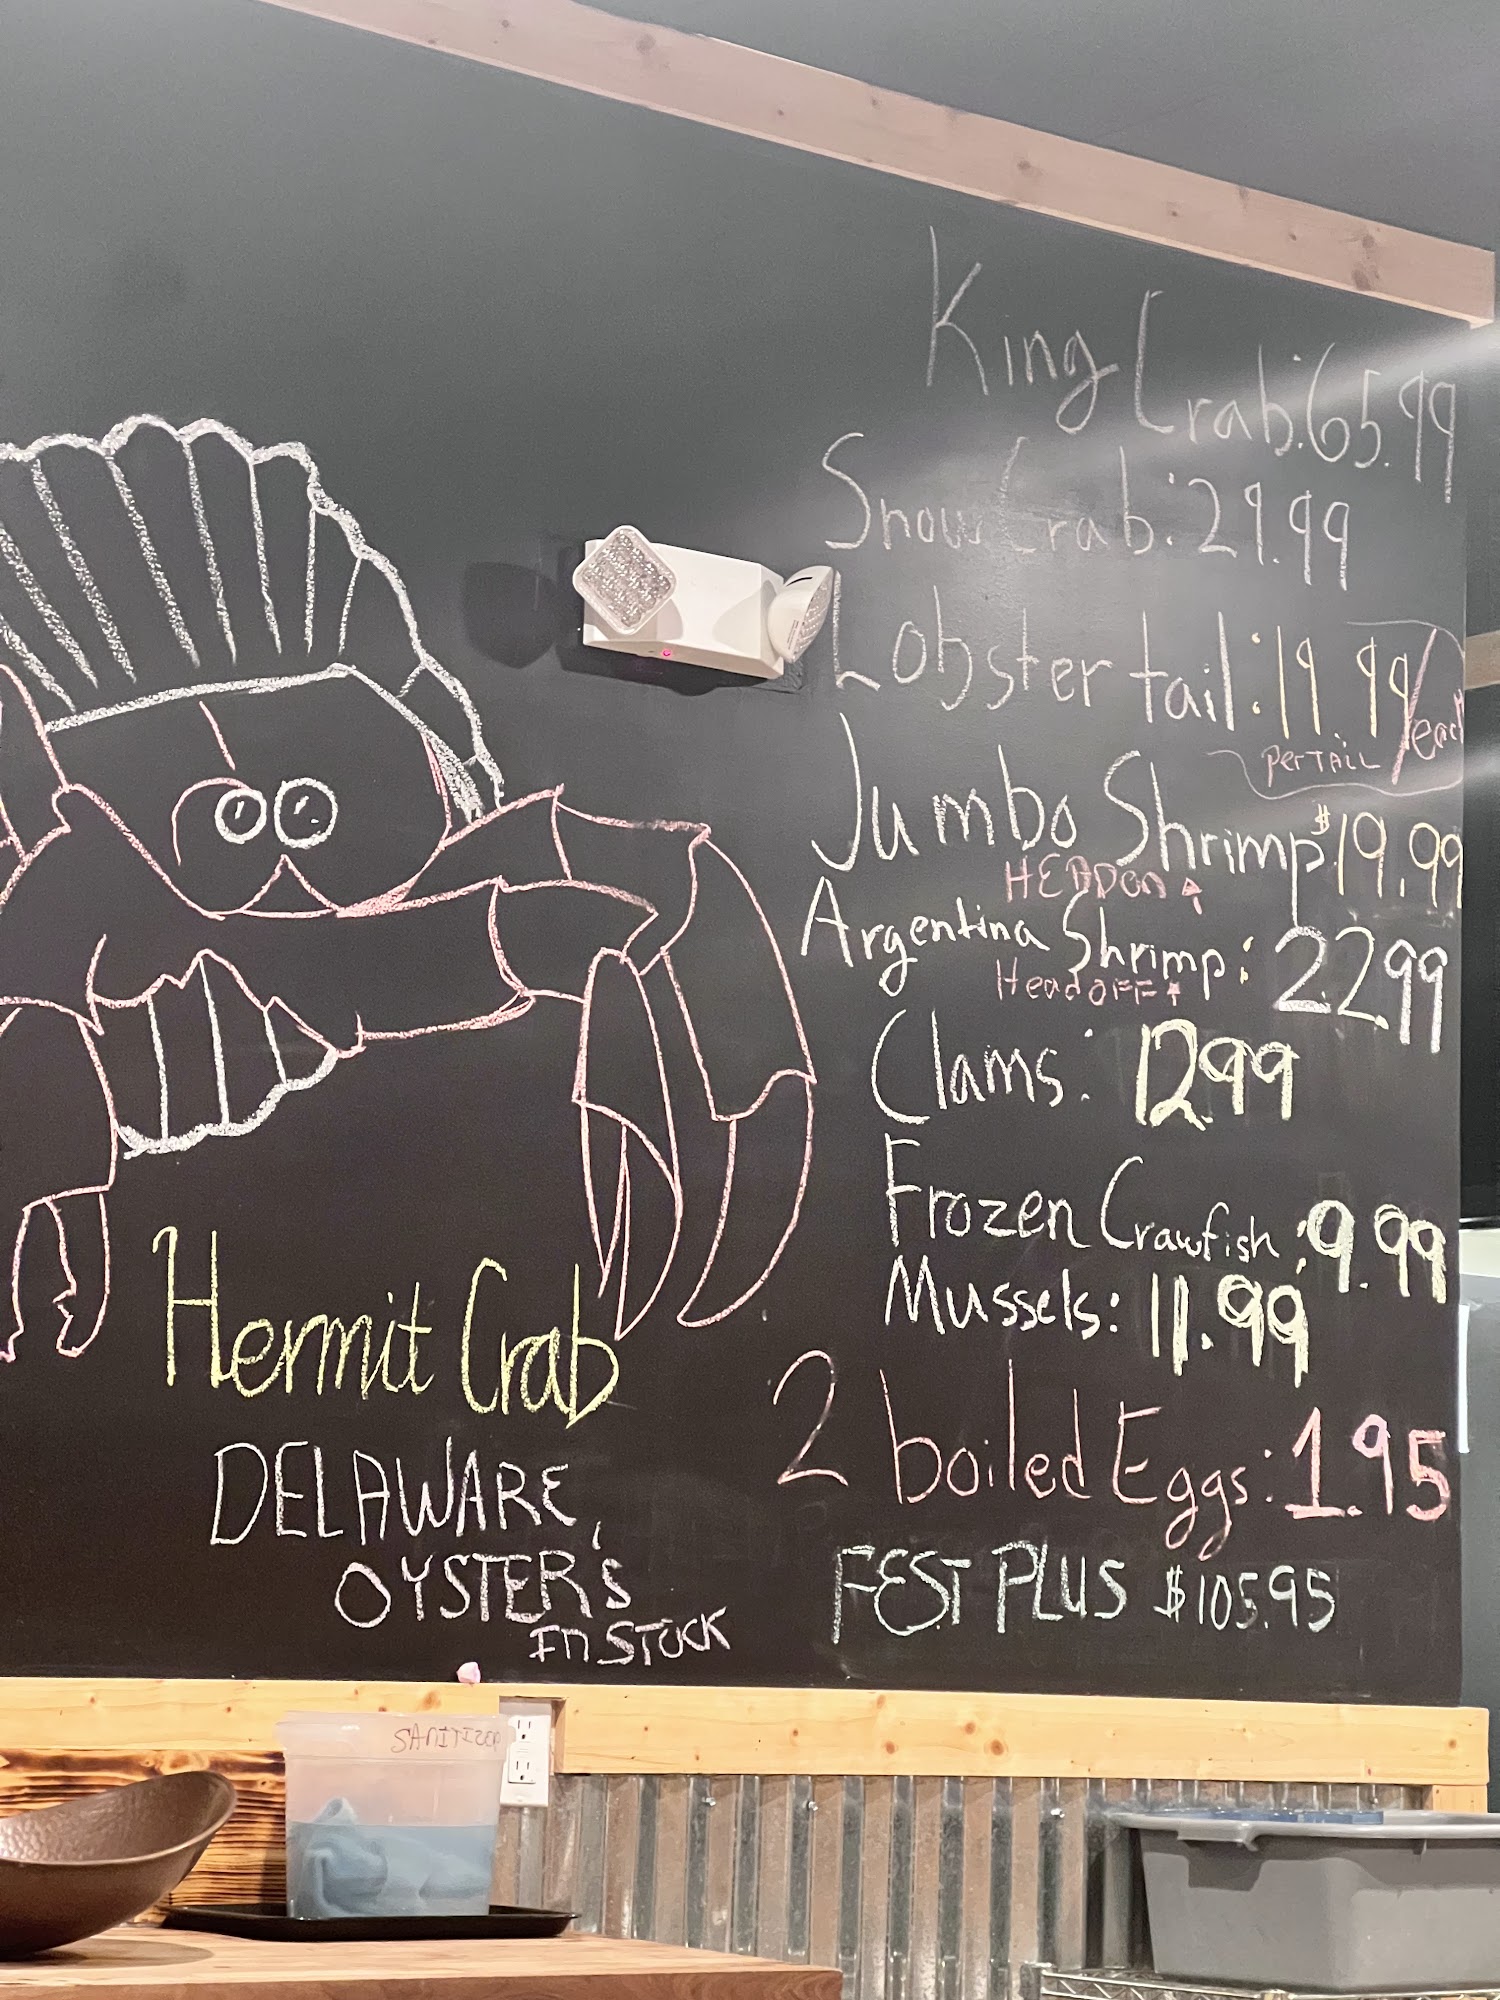 King Crab: 65.99
Snow Crab: 29.99
Lobster tail: 19.99/each
PerTAIL
Jumbo Shrimp $19.99
HEADON
Argentina Shrimp: 22.99
HeadOFF
Clams: 12.99
Frozen Crawfish: 9.99
Mussels: 11.99
2 boiled Eggs: 1.95
FEST PLUS $105.95
Hermit Crab
DELAWARE,
OYSTER's
In STOCK
SANITIZER